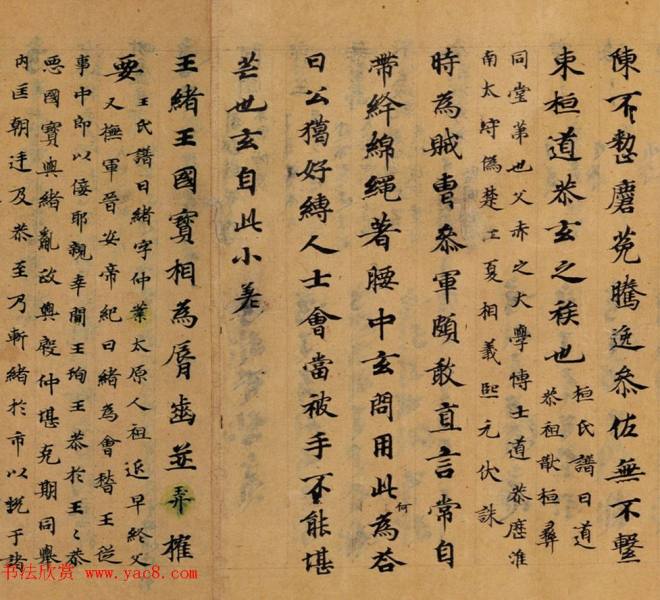 陳不整麏菟騰逸參佐無不繫
束桓道恭玄之族也
桓氏譜曰道
恭祖猷桓彝
同堂弟也父赤之大學博士道恭歷淮
南太守偽楚江夏相義熙元伏誅
時為賊曹參軍頗敢直言常自
帶絳綿繩著腰中玄問用此何為答
曰公獦好縛人士會當被手不能堪
芒也玄自此小差
王緒王國寶相為脣齒並弄權
要
王氏譜曰緒字仲業太原人祖延早終父
乂撫軍晉安帝紀曰緒為會稽王從
事中郎以佞耶親幸間王珣王恭於王〻恭
惡國寶與緒亂政與殷仲堪克期同舉
內匡朝廷及恭至乃斬緒於市以說于諸
书法欣赏 www.yac8.com